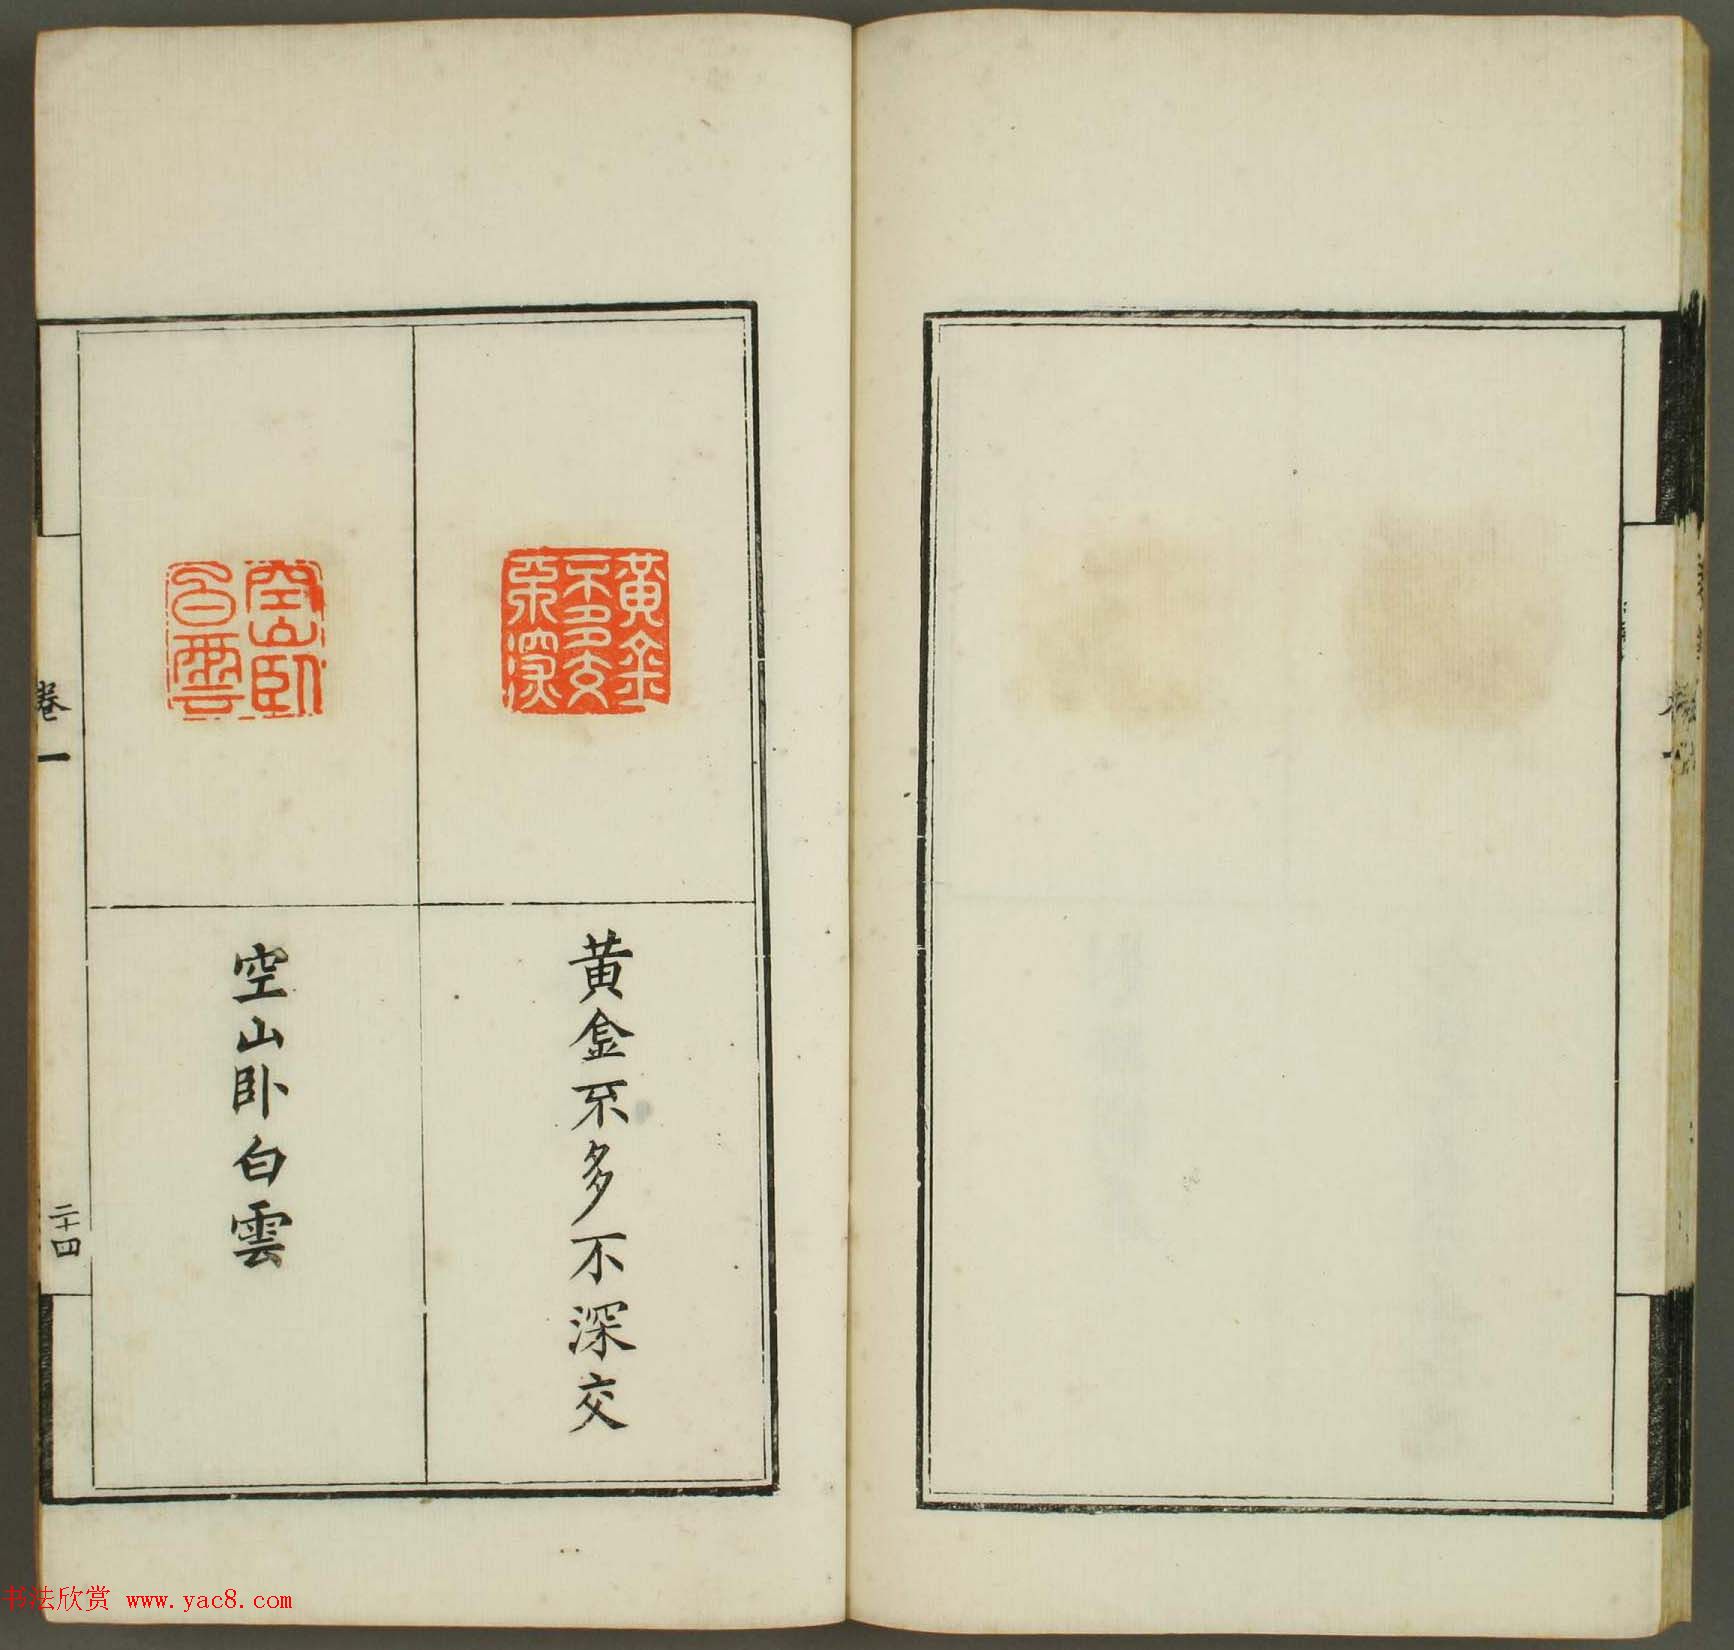 黄金不多不深交
空山卧白雲
黄金
不多交
不深
空山卧
白雲
卷一
二十四
书法欣赏 www.yac8.com